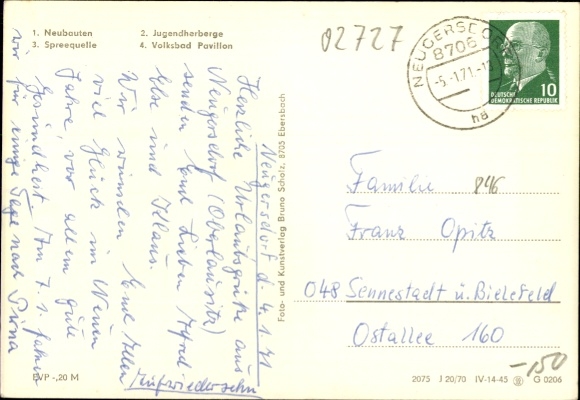 1. Neubauten
2. Jugendherberge
3. Spreequelle
4. Volksbad Pavillon
02727
NEUGERSDORF
8706
-5.-1.71.-17
ha
10
DEUTSCHE
DEMOKRATISCHE REPUBLIK
Neugersdorf, d. 4.1.71
Herzliche Urlaubsgrüße aus
Neugersdorf (Oberlausitz)
senden Euch Lieben Alfred
Else und Klaus.
Wir wünschen Euch Allen
viel Glück im Neuen
Jahre, vor allem gute
Gesundheit. Am 7.1. fahren
wir für einige Tage nach Pirna
Auf wiedersehn
Foto- und Kunstverlag Bruno Scholz, 8705 Ebersbach
Familie
846
Franz Opitz
048 Sennestadt ü. Bielefeld
Ostallee 160
-150
EVP -,20 M
2075 J 20/70 IV-14-45 G 0206